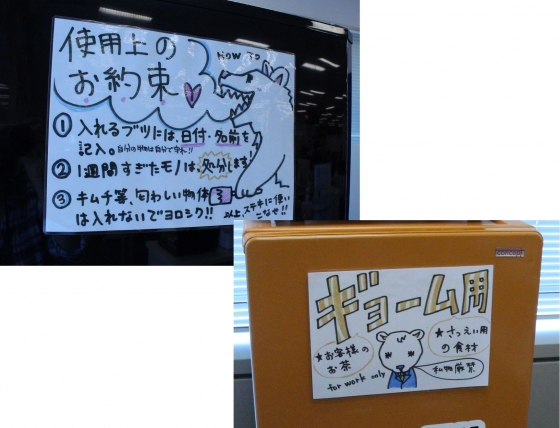 使用上の
お約束
HOW TO
① 入れるブツには、日付・名前を
記入。自分の物は自分で守れ!!
② 1週間すぎたモノは、処分します
③ キムチ等、匂わしい物体
は入れないでヨロシク!!
以上、ステキに使い
こなせ!!
ギョーム用
★お客様の
お茶
★さつえい用
の食材
for work only
私物厳禁